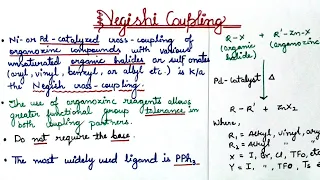 Negishi Coupling
Ni- or Pd-catalyzed cross-coupling of
organozinc compounds with various
unsaturated organic halides or sulfonates
(aryl, vinyl, benzyl, or allyl etc.) is k/a
the Negish cross-coupling.
The use of organozinc reagents allows
greater functional group tolerance in
both coupling partners.
Do not require the base.
The most widely used ligand is PPh3
R-X + R'-Zn-X
(organic halide) (organozinc
Pd-catalyst Δ
R-R' + ZnX2
Where,
R1 = Alkyl, vinyl, aryl
R2 = Alkyl
X = I, Br, Cl, TFO, etc
Y = I, TFO, Ts